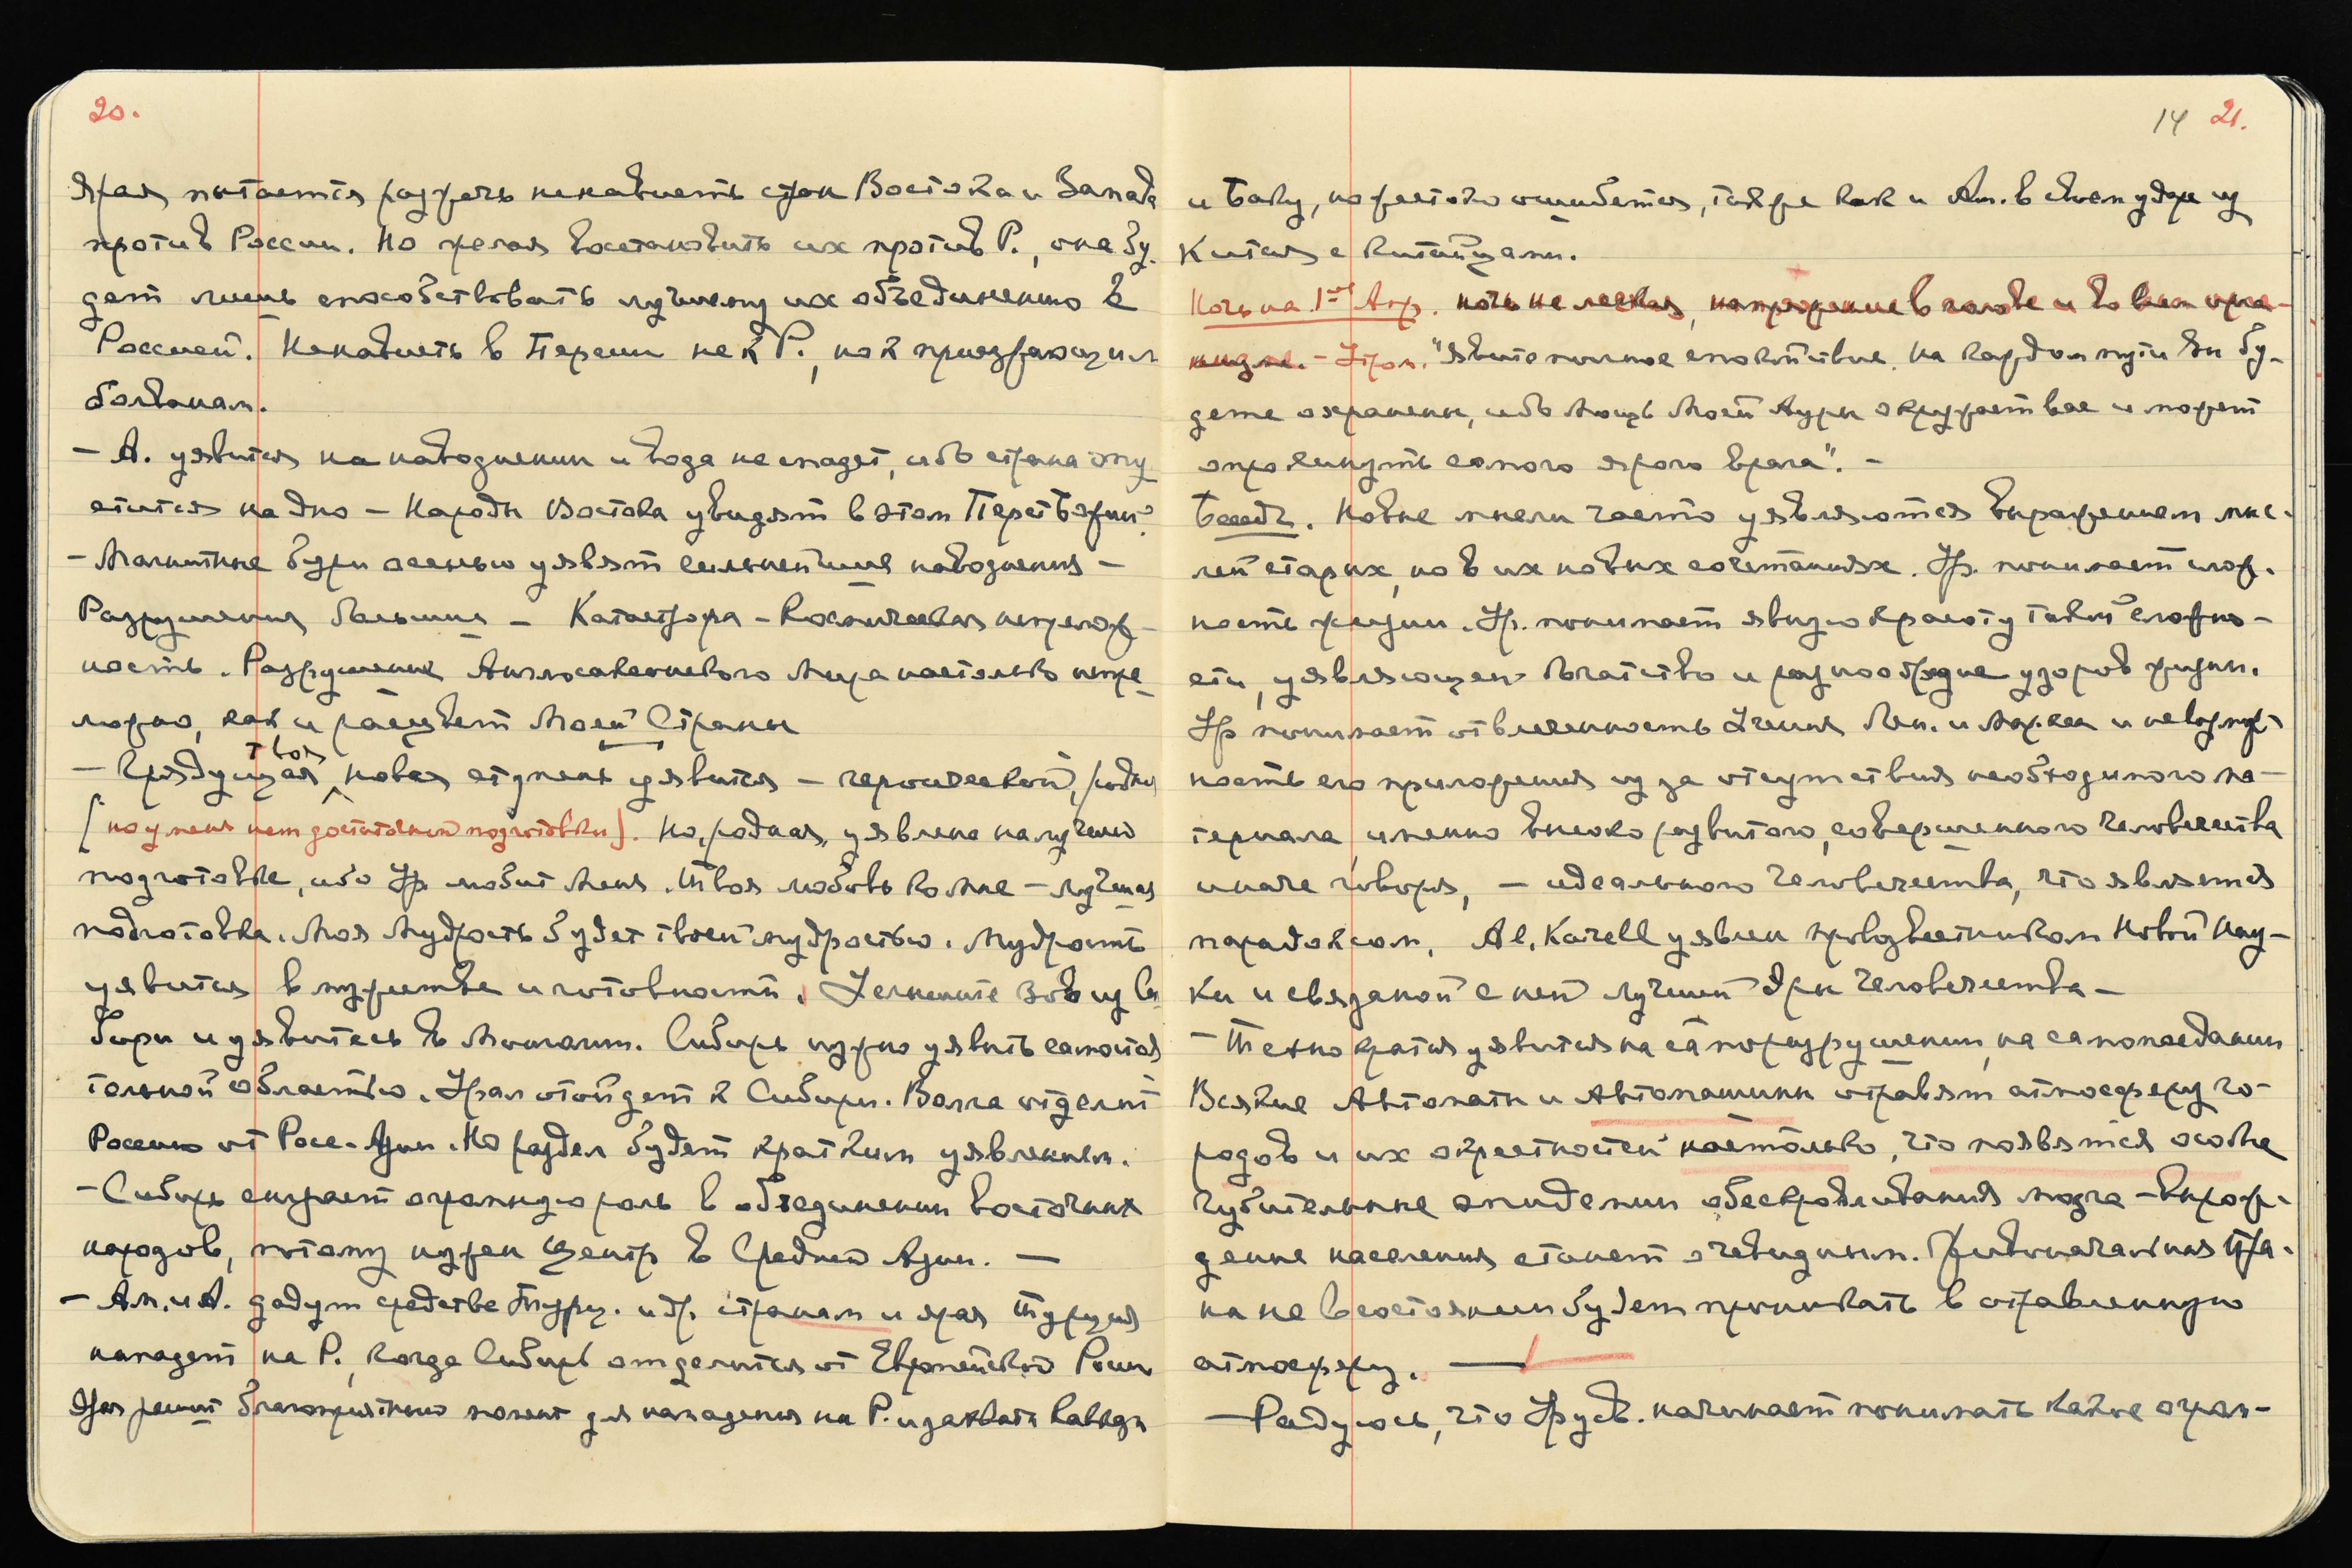 20.
ярая пытается разжечь ненависть стран Востока и Запада
против России. Но желая восстановить их против Р., она бу-
дет лишь способствовать лучшему их объединению с
Россией. Ненависть в Персии не к Р., но к приезжающим
болванам.
– А. уявится на наводнении и вода не спадет, ибо страна опу
стится на дно – Народы Востока увидят в этом Перст Божий.
– Магнитные бури осенью уявят сильнейшие наводнения –
Разрушения большие – Катастрофа – Космическая непрелож-
ность. Разрушение Англосаксонского Мира настолько непре
ложно, как и расцвет Моей Страны
твоя
– Грядущая новая ступень уявится – героической, родная
[но у меня нет достаточной подготовки]. Но, родная, уявлена на лучшей
подготовке, ибо Ур. любит Меня. Твоя любовь ко Мне – лучшая
подготовка. Моя Мудрость будет твоей мудростью. Мудрость
уявится в мужестве и готовности. Услышите Зов из Си
бири и уявитесь в Монголии. Сибирь нужно уявить самостоя
тельной областью. Урал отойдет к Сибири. Волга отделит
Россию от Росс. Азии. Но раздел будет кратким уявлением.
– Сибирь сыграет огромную роль в объединении восточных
народов, потому нужен Центр в Средней Азии. –
– Ам. и А. дадут средства Турц. и др. странам и ярая Турция
нападет на Р., когда Сибирь отделится от Европейской России
Яро решит благоприятным момент для нападения на Р. и захвата Кавказа
14 21.
и Баку, но жестоко ошибется, так же как и Ам. в своем ударе из
Китая с китайцами.
Ночь на 1-ое Апр. ночь не легкая, напряжение в голове и во всем орга-
низме. – Утром. "Явите полное спокойствие. На каждом пути вы бу-
дете охранены, ибо Мощь Моей Ауры окружает вас и может
опрокинуть самого ярого врага". –
Беседа. Новые мысли часто уявляются выражением мыс-
лей старых, но в их новых сочетаниях. Ур. понимает слож-
ность жизни. Ур. понимает явную красоту такой сложно-
сти, уявляющей богатство и разнообразие узоров жизни.
Ур понимает отвлеченность Учения Лен. и Маркса и невозмож-
ность его приложения из за отсутствия необходимого ма-
териала, именно высоко развитого, совершенного человечества
иначе говоря, – идеального человечества, что является
парадоксом. Al. Karell уявлен провозвестником Новой Нау-
ки и связаной с ней лучшей Эры человечества –
– Технократия уявится на саморазрушении, на самопоедании
Всякие Автоматы и Автомашины отравят атмосферу го-
родов и их окрестностей настолько, что появятся особые
губительные эпидемии обескровливания мозга – вырож-
дение населения станет очевидным. Живоначальная Пра-
на не в состоянии будет проникать в отравленную
атмосферу. –
– Радуюсь, что Урусв. начинает понимать какие огром-